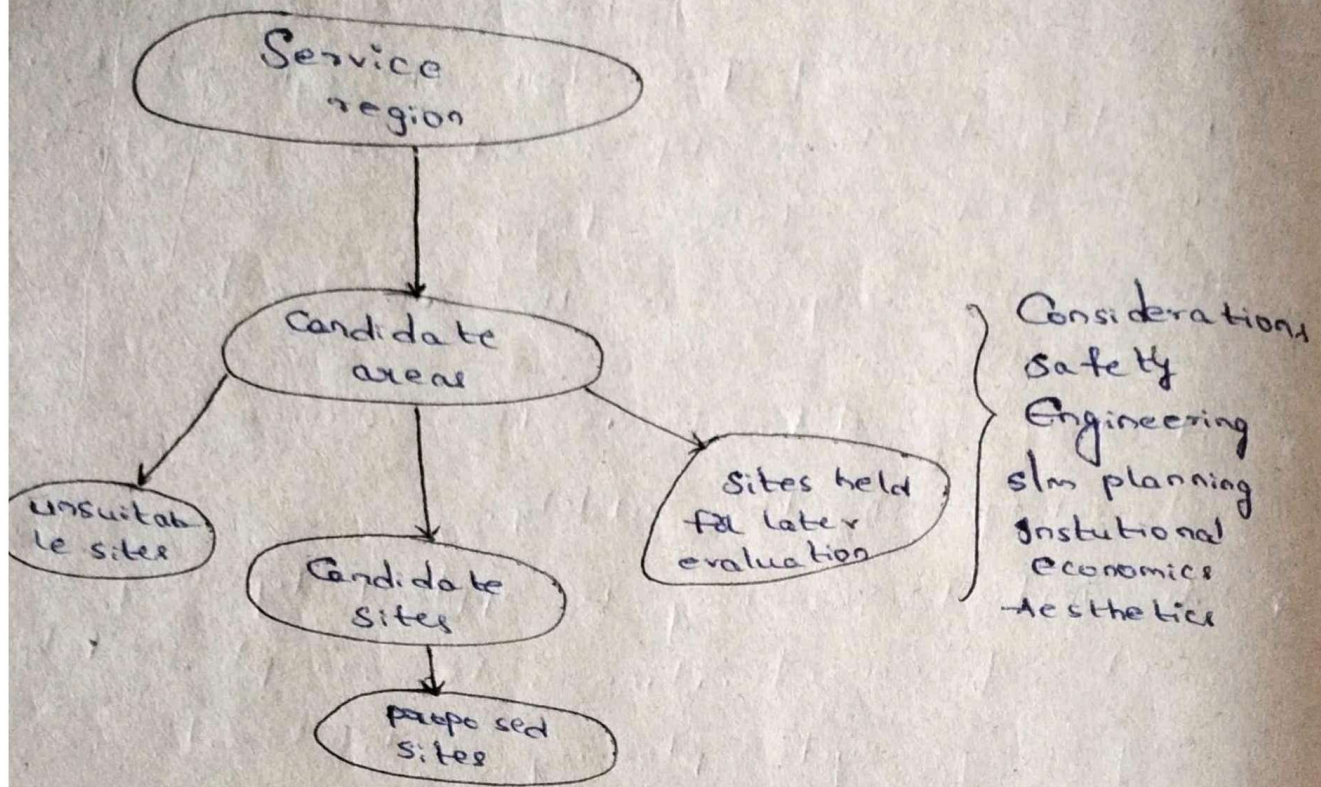 Service
region
Candidate
areas
unsuitab
le sites
Candidate
sites
proposed
sites
Sites held
for later
evaluation
Considerations
Safety
Engineering
s/m planning
Instutional
economics
Aesthetics